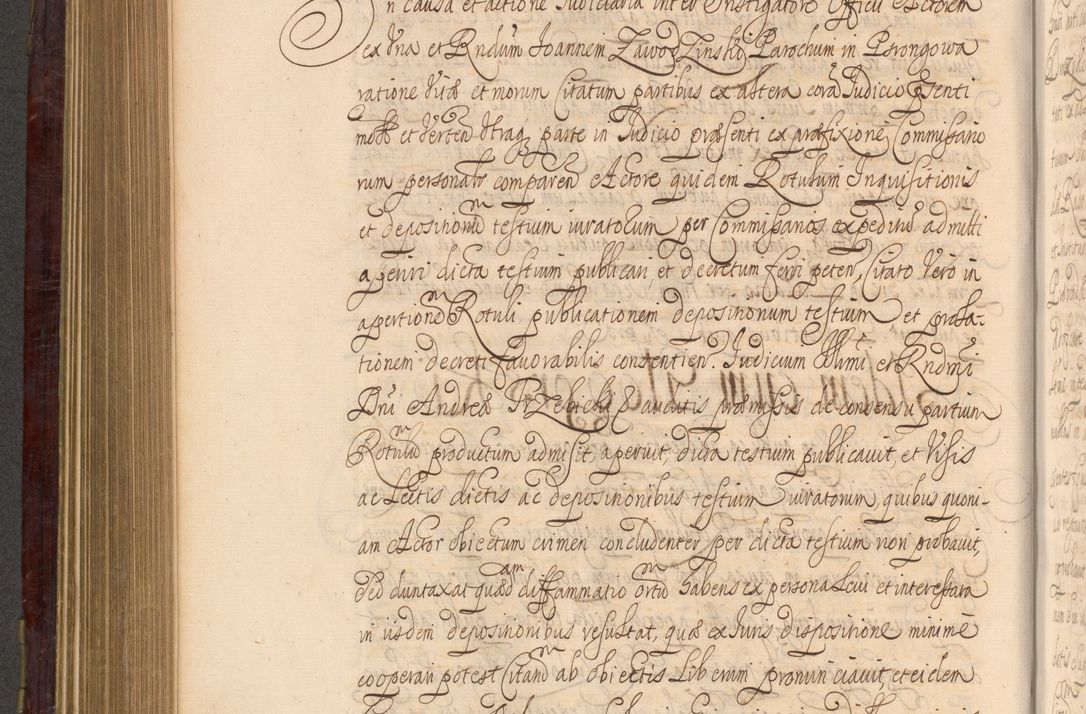 In causa et actione Iudiciaria inter Instigatorē Officii Actorem
ex Una et Rndum Ioannem Zawodzinski Parochum in Pstrongowa
ratione Vitæ et morum Citatum partibus ex altera corā Iudicio Psenti
mota et Verten Utraq parte in Iudicio præsenti ex præfixione Commissario
rum personalr comparen Actore quidem Rotulum Inquisitionis
et depositionū testium iuratorum per Commissarios expeditū admitti
aperiri dicta testium publicari et decretum ferri peten, Citato Vero in
apertionē Rotuli publicationem depositionum testium et prola-
tionem decreti favorabilis consentien. Iudicium Illmi et Rndmi
Dni Andreæ Trzebicki & auditis præmissis de consensu partium
Rotulū productum admisit, aperuit, dicta testium publicavit, et Visis
ac Lectis dictis ac depositionibus testium iuratorum, quibus quoni-
am Actor obiectum crimen concludenter per dicta testium non probavit,
Sed duntaxat quædam diffammatio ortū habens ex persona Levi et interessata
in iisdem depositionibus resultat, quæ ex Iuris dispositione minime
cooperari potest Citandū ab obiectis Liberum pronunciavit, et eidem